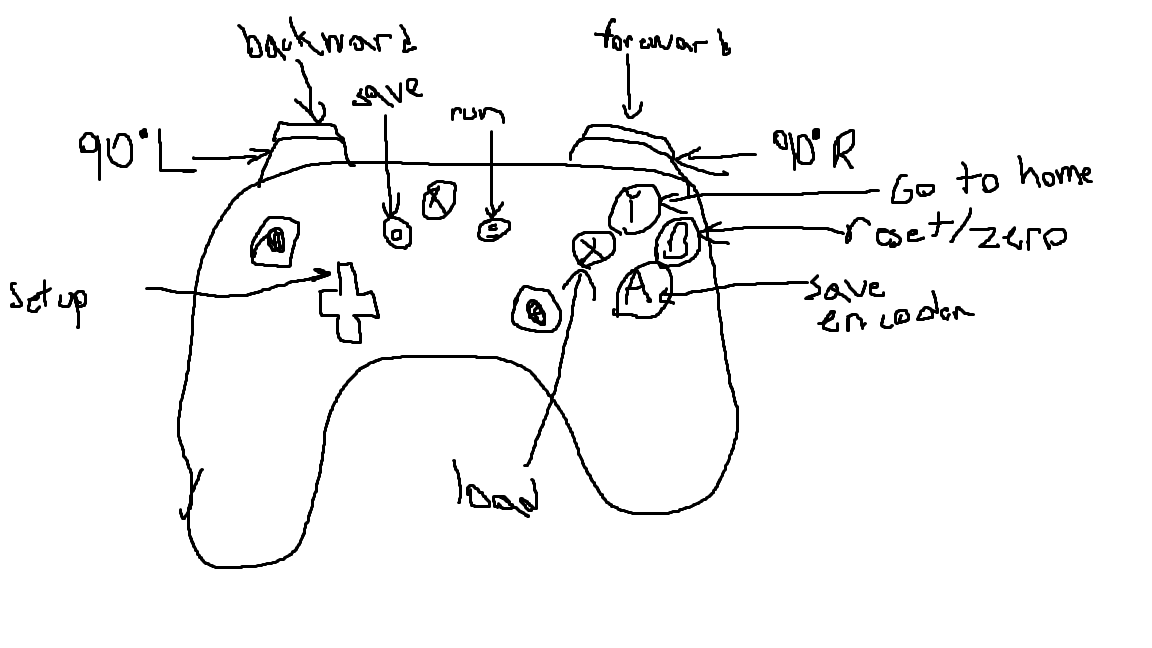 backward
foreward
save
run
90°L
90°R
X
Y
Go to home
B
reset/zero
X
setup
A
save
encoder
load